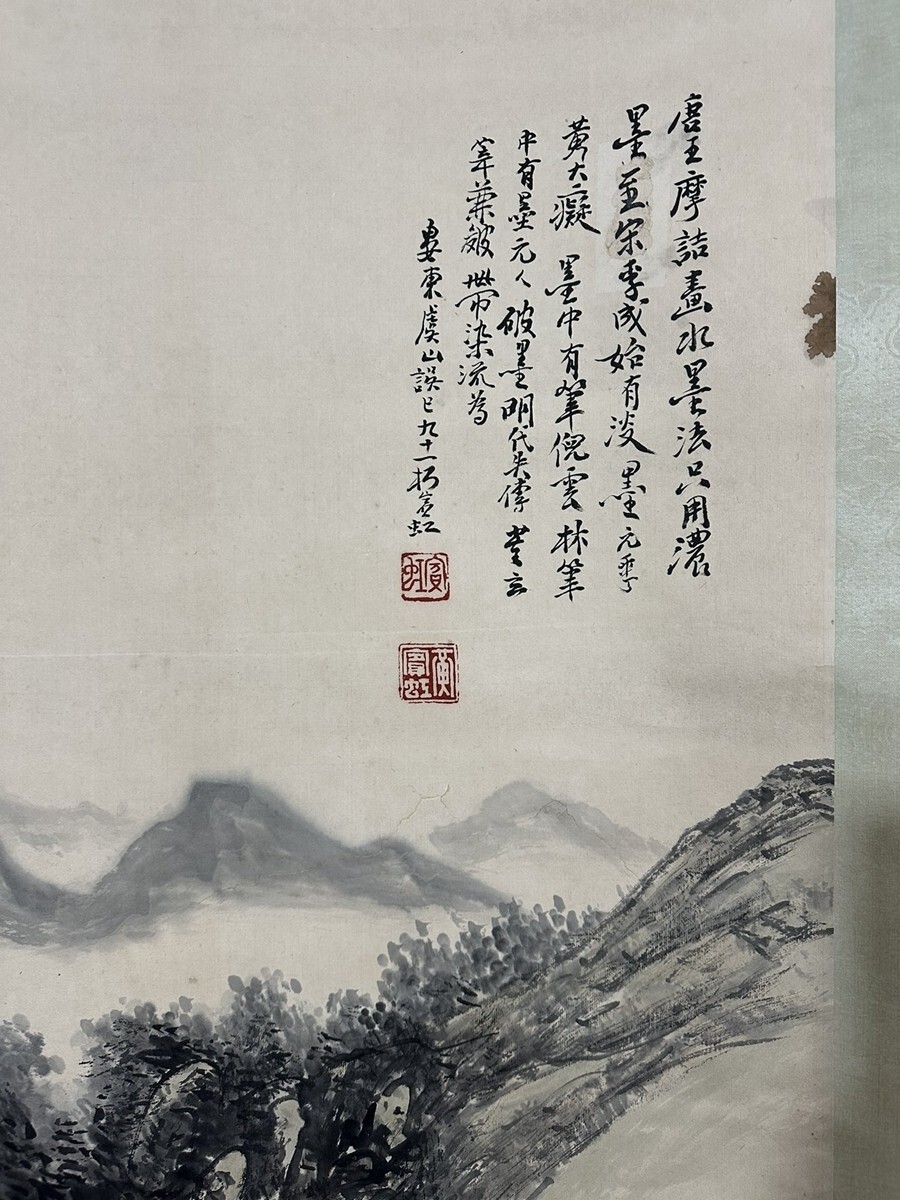 唐王摩詰畫水墨法只用濃
墨至宋李成始有淡墨元季
黃大癡墨中有筆倪雲林筆
中有墨元人破墨明代失傳董玄
宰兼皴帶染流為
婁東虞山誤已九十一朽賓虹
賓虹
黃賓虹